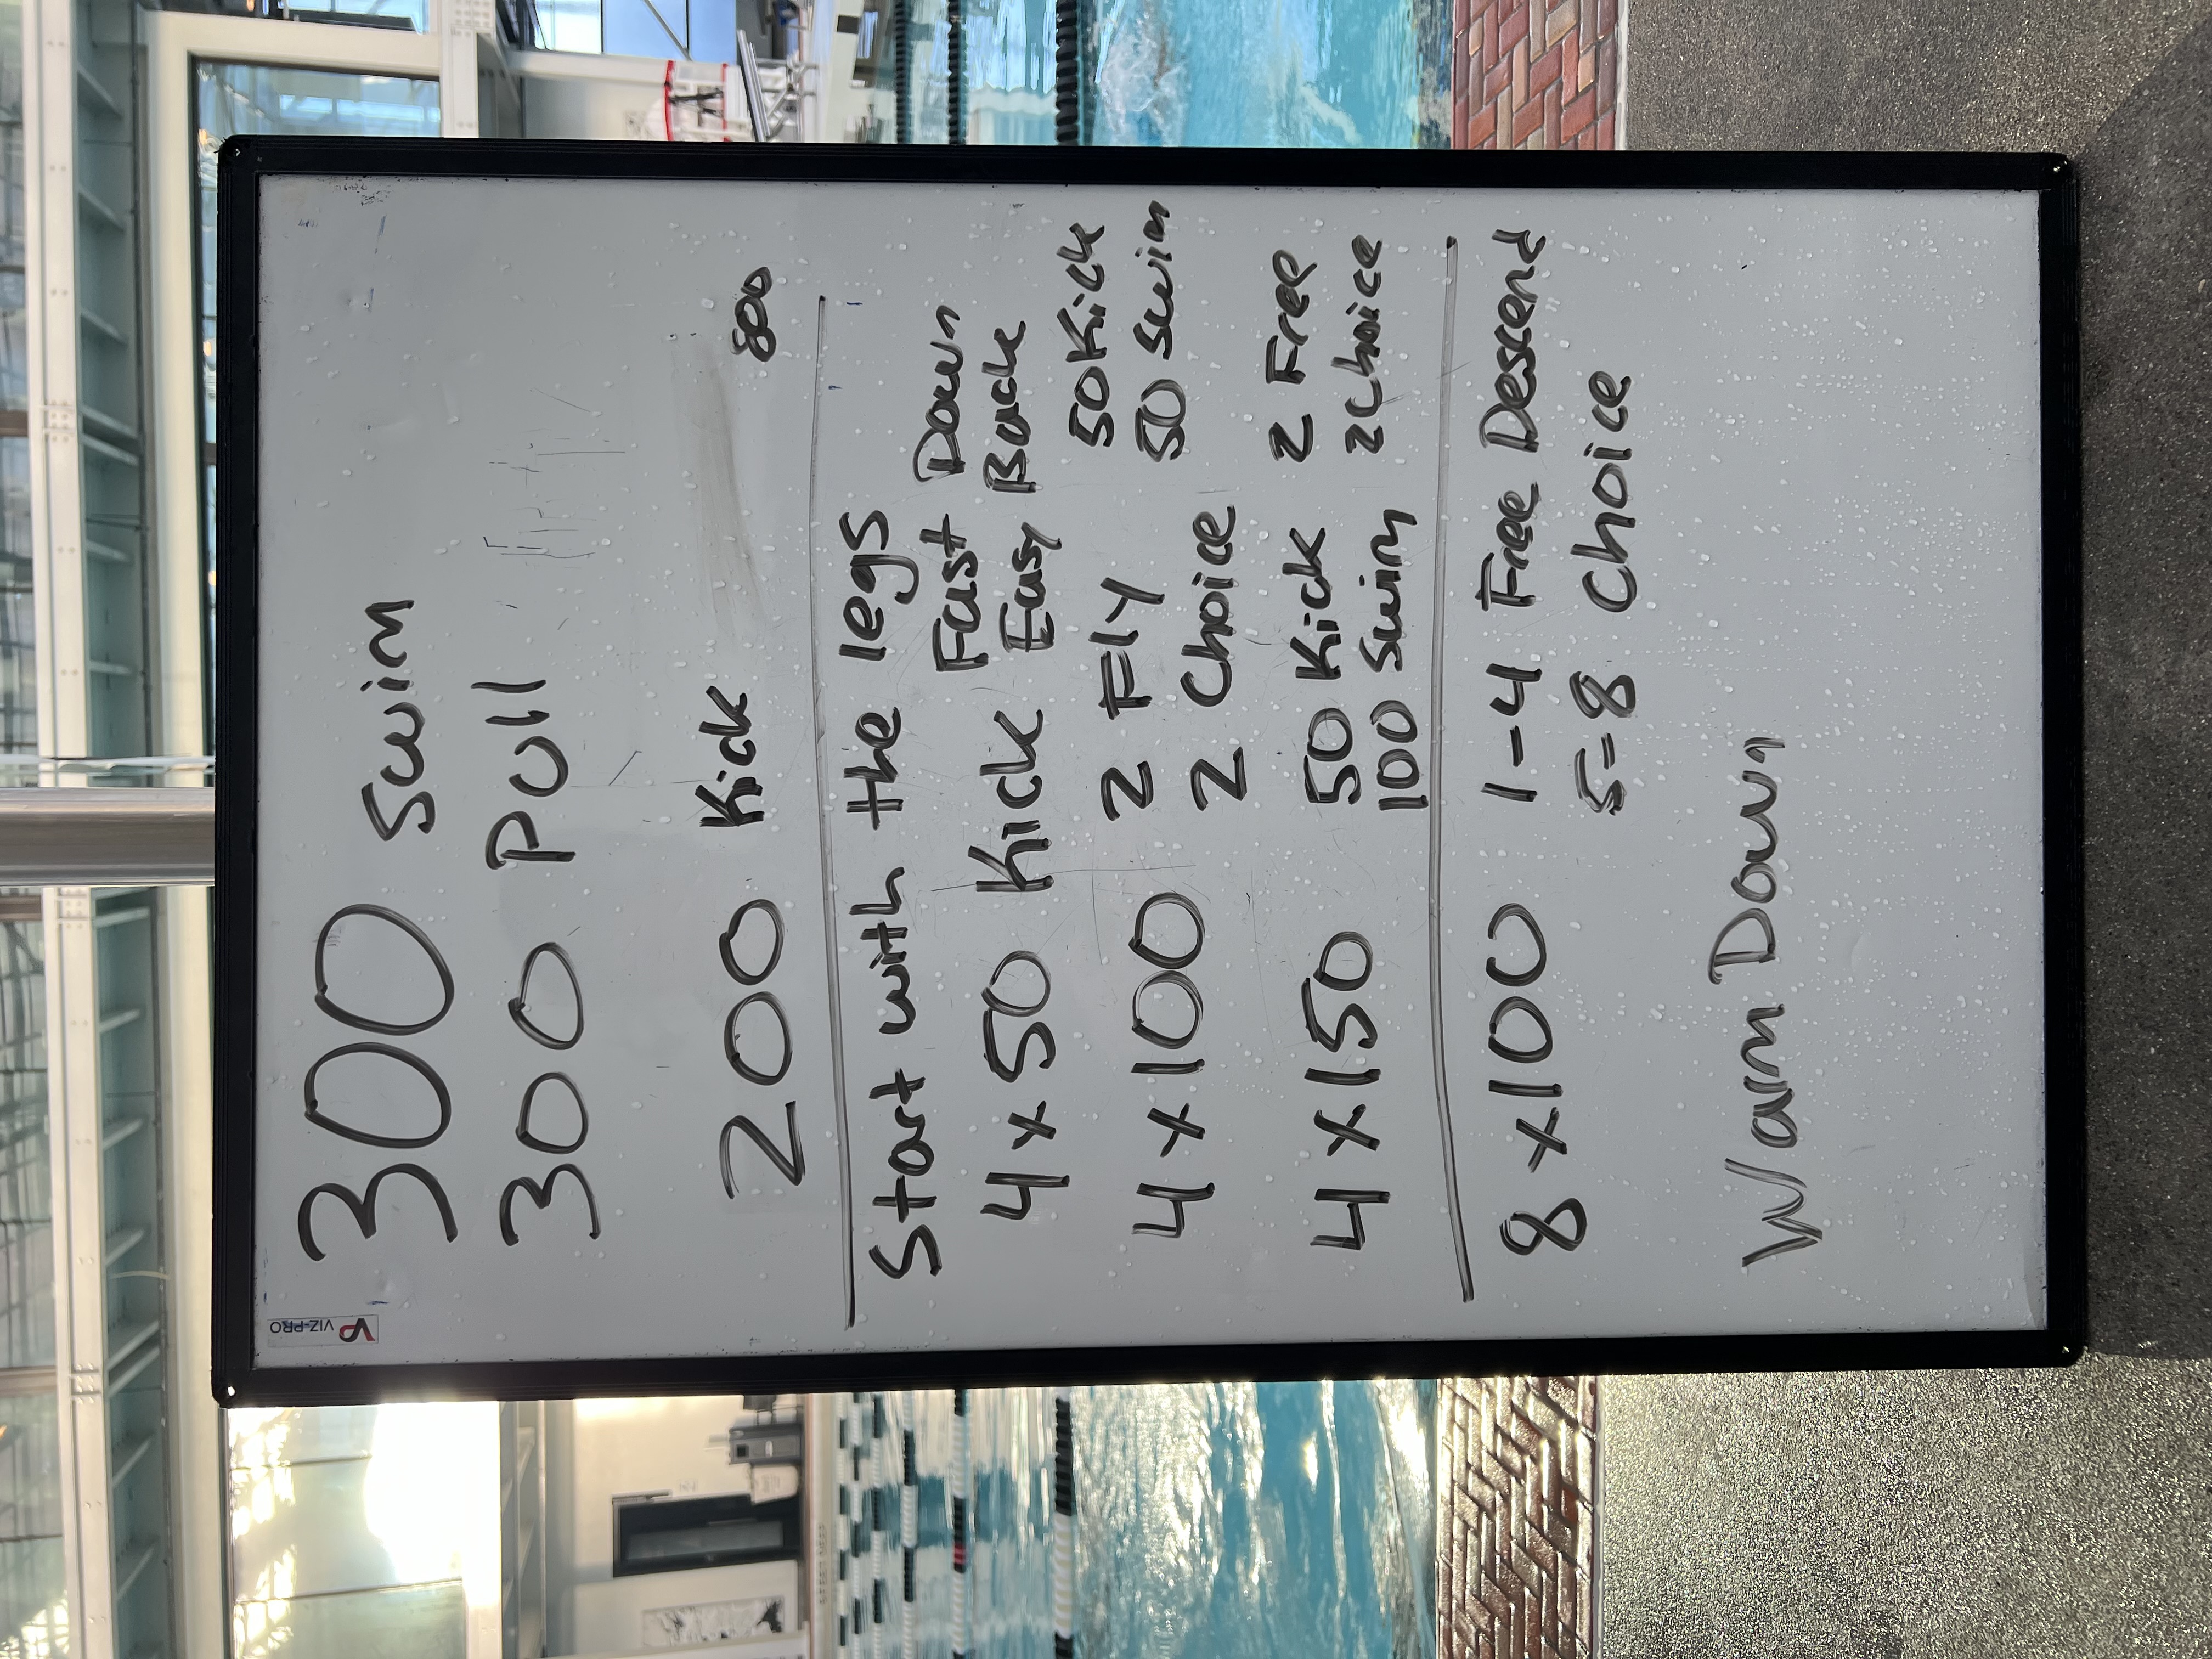 VIZ-PRO
300 Swim
300 Pull
200 Kick 800
Start with the legs
4 x 50 Kick Fast Down
Easy Back
4 x 100 2 Fly 50 Kick
2 Choice 50 Swim
4 x 150 50 Kick 2 Free
100 Swim 2 Choice
8 x 100 1-4 Free Descend
5-8 Choice
Warm Down